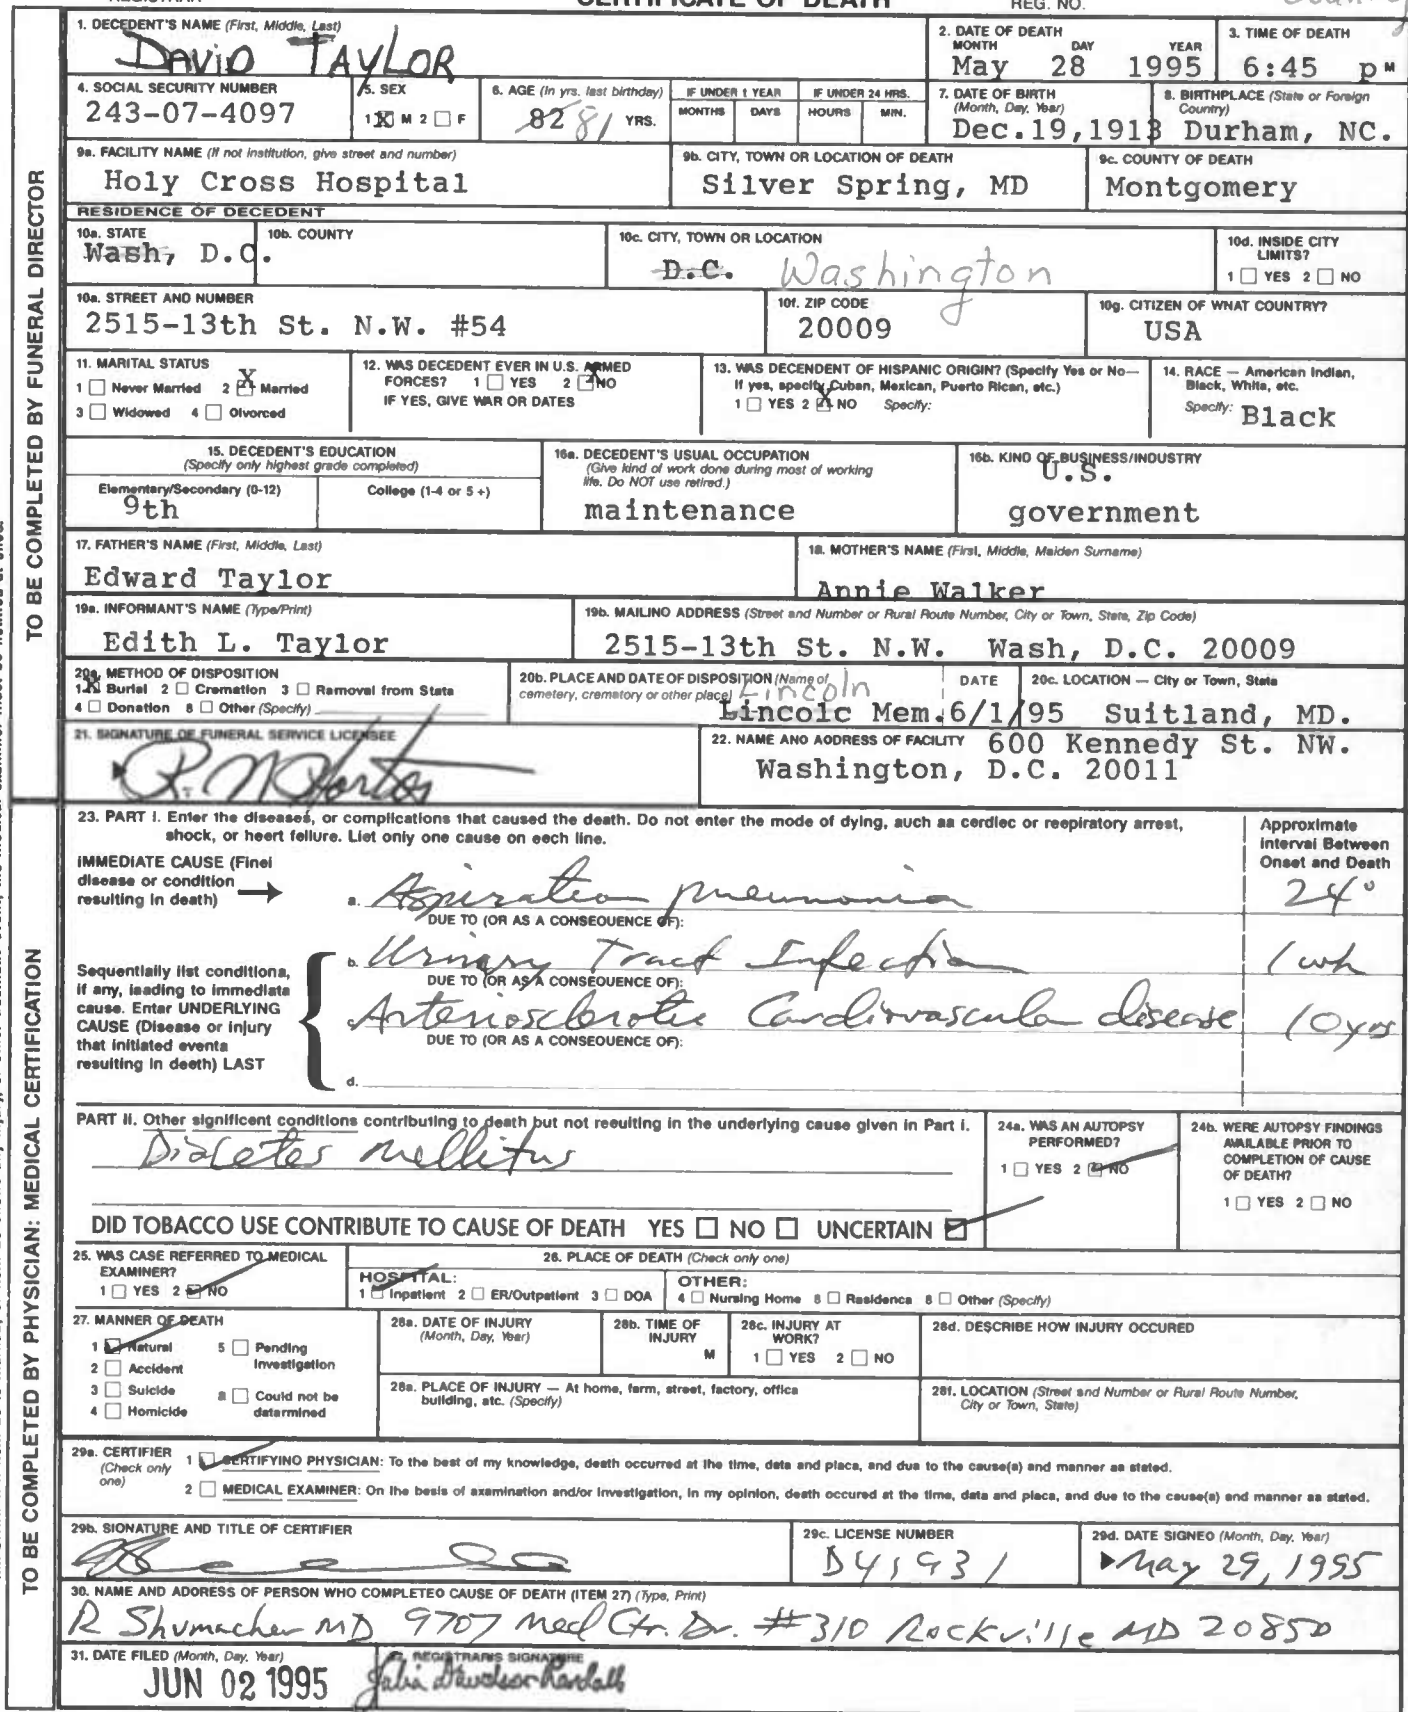 CERTIFICATE OF DEATH
REG. NO.
1. DECEDENT'S NAME (First, Middle, Last)
DAVID TAYLOR
2. DATE OF DEATH
MONTH DAY YEAR
May 28 1995
3. TIME OF DEATH
6:45 p M
4. SOCIAL SECURITY NUMBER
243-07-4097
5. SEX
1 X M 2 F
6. AGE (In yrs. last birthday)
82 81 YRS.
IF UNDER 1 YEAR
MONTHS DAYS
IF UNDER 24 HRS.
HOURS MIN.
7. DATE OF BIRTH
(Month, Day, Year)
Dec.19,1913
8. BIRTHPLACE (State or Foreign
Country)
Durham, NC.
9a. FACILITY NAME (If not institution, give street and number)
Holy Cross Hospital
9b. CITY, TOWN OR LOCATION OF DEATH
Silver Spring, MD
9c. COUNTY OF DEATH
Montgomery
RESIDENCE OF DECEDENT
10a. STATE
Wash, D.C.
10b. COUNTY
10c. CITY, TOWN OR LOCATION
D.C. Washington
10d. INSIDE CITY
LIMITS?
1 YES 2 NO
10a. STREET AND NUMBER
2515-13th St. N.W. #54
10f. ZIP CODE
20009
10g. CITIZEN OF WNAT COUNTRY?
USA
11. MARITAL STATUS
1 Never Married 2 X Married
3 Widowed 4 Oivorced
12. WAS DECEDENT EVER IN U.S. ARMED
FORCES? 1 YES 2 X NO
IF YES, GIVE WAR OR DATES
13. WAS DECENDENT OF HISPANIC ORIGIN? (Specify Yes or No—
If yes, specify Cuban, Mexican, Puerto Rican, etc.)
1 YES 2 X NO Specify:
14. RACE — American Indian,
Black, White, etc.
Specify: Black
15. DECEDENT'S EDUCATION
(Specify only highest grade completed)
Elementary/Secondary (0-12)
9th
College (1-4 or 5 +)
16a. DECEDENT'S USUAL OCCUPATION
(Give kind of work done during most of working
life. Do NOT use retired.)
maintenance
16b. KIND OF BUSINESS/INDUSTRY
U.S.
government
17. FATHER'S NAME (First, Middle, Last)
Edward Taylor
18. MOTHER'S NAME (First, Middle, Maiden Surname)
Annie Walker
19a. INFORMANT'S NAME (Type/Print)
Edith L. Taylor
19b. MAILINO ADDRESS (Street and Number or Rural Route Number, City or Town, State, Zip Code)
2515-13th St. N.W. Wash, D.C. 20009
20a. METHOD OF DISPOSITION
1 X Burial 2 Cremation 3 Removal from Stata
4 Donation 8 Other (Specify)
20b. PLACE AND DATE OF DISPOSITION (Name of
cemetery, crematory or other place)
Lincoln
Lincolc Mem.
DATE
6/1/95
20c. LOCATION — City or Town, State
Suitland, MD.
21. SIGNATURE OF FUNERAL SERVICE LICENSEE
22. NAME ANO AODRESS OF FACILITY 600 Kennedy St. NW.
Washington, D.C. 20011
TO BE COMPLETED BY FUNERAL DIRECTOR
23. PART I. Enter the diseases, or complications that caused the death. Do not enter the mode of dying, auch aa cerdlec or reepiratory arrest,
shock, or heert fellure. Liet only one cause on eech line.
Approximate
Interval Between
Onset and Death
IMMEDIATE CAUSE (Finel
disease or condition
resulting in death)
a. Aspiration pneumonia 24°
DUE TO (OR AS A CONSEOUENCE OF):
b. Urinary Tract Infection 1 wk
DUE TO (OR AS A CONSEQUENCE OF):
c. Arteriosclerotic Cardiovascular disease 10 yrs
DUE TO (OR AS A CONSEQUENCE OF):
d.
Sequentially list conditiona,
if any, leading to immediate
cause. Enter UNDERLYING
CAUSE (Disease or injury
that initiated eventa
resulting in deeth) LAST
PART II. Other significent conditions contributing to death but not reeulting in the underlying cause given in Part I.
Diabetes mellitus
24a. WAS AN AUTOPSY
PERFORMED?
1 YES 2 NO
24b. WERE AUTOPSY FINDINGS
AVAILABLE PRIOR TO
COMPLETION OF CAUSE
OF DEATH?
1 YES 2 NO
DID TOBACCO USE CONTRIBUTE TO CAUSE OF DEATH YES NO UNCERTAIN
25. WAS CASE REFERRED TO MEDICAL
EXAMINER?
1 YES 2 NO
26. PLACE OF DEATH (Check only one)
HOSPITAL:
1 Inpatient 2 ER/Outpatient 3 DOA
OTHER:
4 Nursing Home 5 Rasidenca 8 Other (Specify)
27. MANNER OF DEATH
1 Natural 5 Pending
Investigation
2 Accident
3 Suicide 8 Could not be
datarmined
4 Homicide
28a. DATE OF INJURY
(Month, Day, Year)
28b. TIME OF
INJURY
M
28c. INJURY AT
WORK?
1 YES 2 NO
28d. DESCRIBE HOW INJURY OCCURED
28a. PLACE OF INJURY — At home, farm, street, factory, offica
building, atc. (Specify)
28f. LOCATION (Street and Number or Rural Route Number,
City or Town, State)
29a. CERTIFIER
(Check only
one)
1 CERTIFYINO PHYSICIAN: To the best of my knowledge, death occurred at the time, data and placa, and dua to the cause(a) and manner aa stated.
2 MEDICAL EXAMINER: On the besis of axamination and/or Investigation, in my opinion, death occured at the time, data and placa, and due to the cause(a) and manner aa stated.
29b. SIONATURE AND TITLE OF CERTIFIER
29c. LICENSE NUMBER
D41931
29d. DATE SIGNEO (Month, Day, Year)
May 29, 1995
30. NAME AND ADORESS OF PERSON WHO COMPLETEO CAUSE OF DEATH (ITEM 27) (Type, Print)
R Shumacher MD 9707 Med Ctr. Dr. #310 Rockville MD 20850
31. DATE FILED (Month, Day, Year)
JUN 02 1995
REGISTRAR'S SIGNATURE
Julia Davidson-Randall
TO BE COMPLETED BY PHYSICIAN: MEDICAL CERTIFICATION